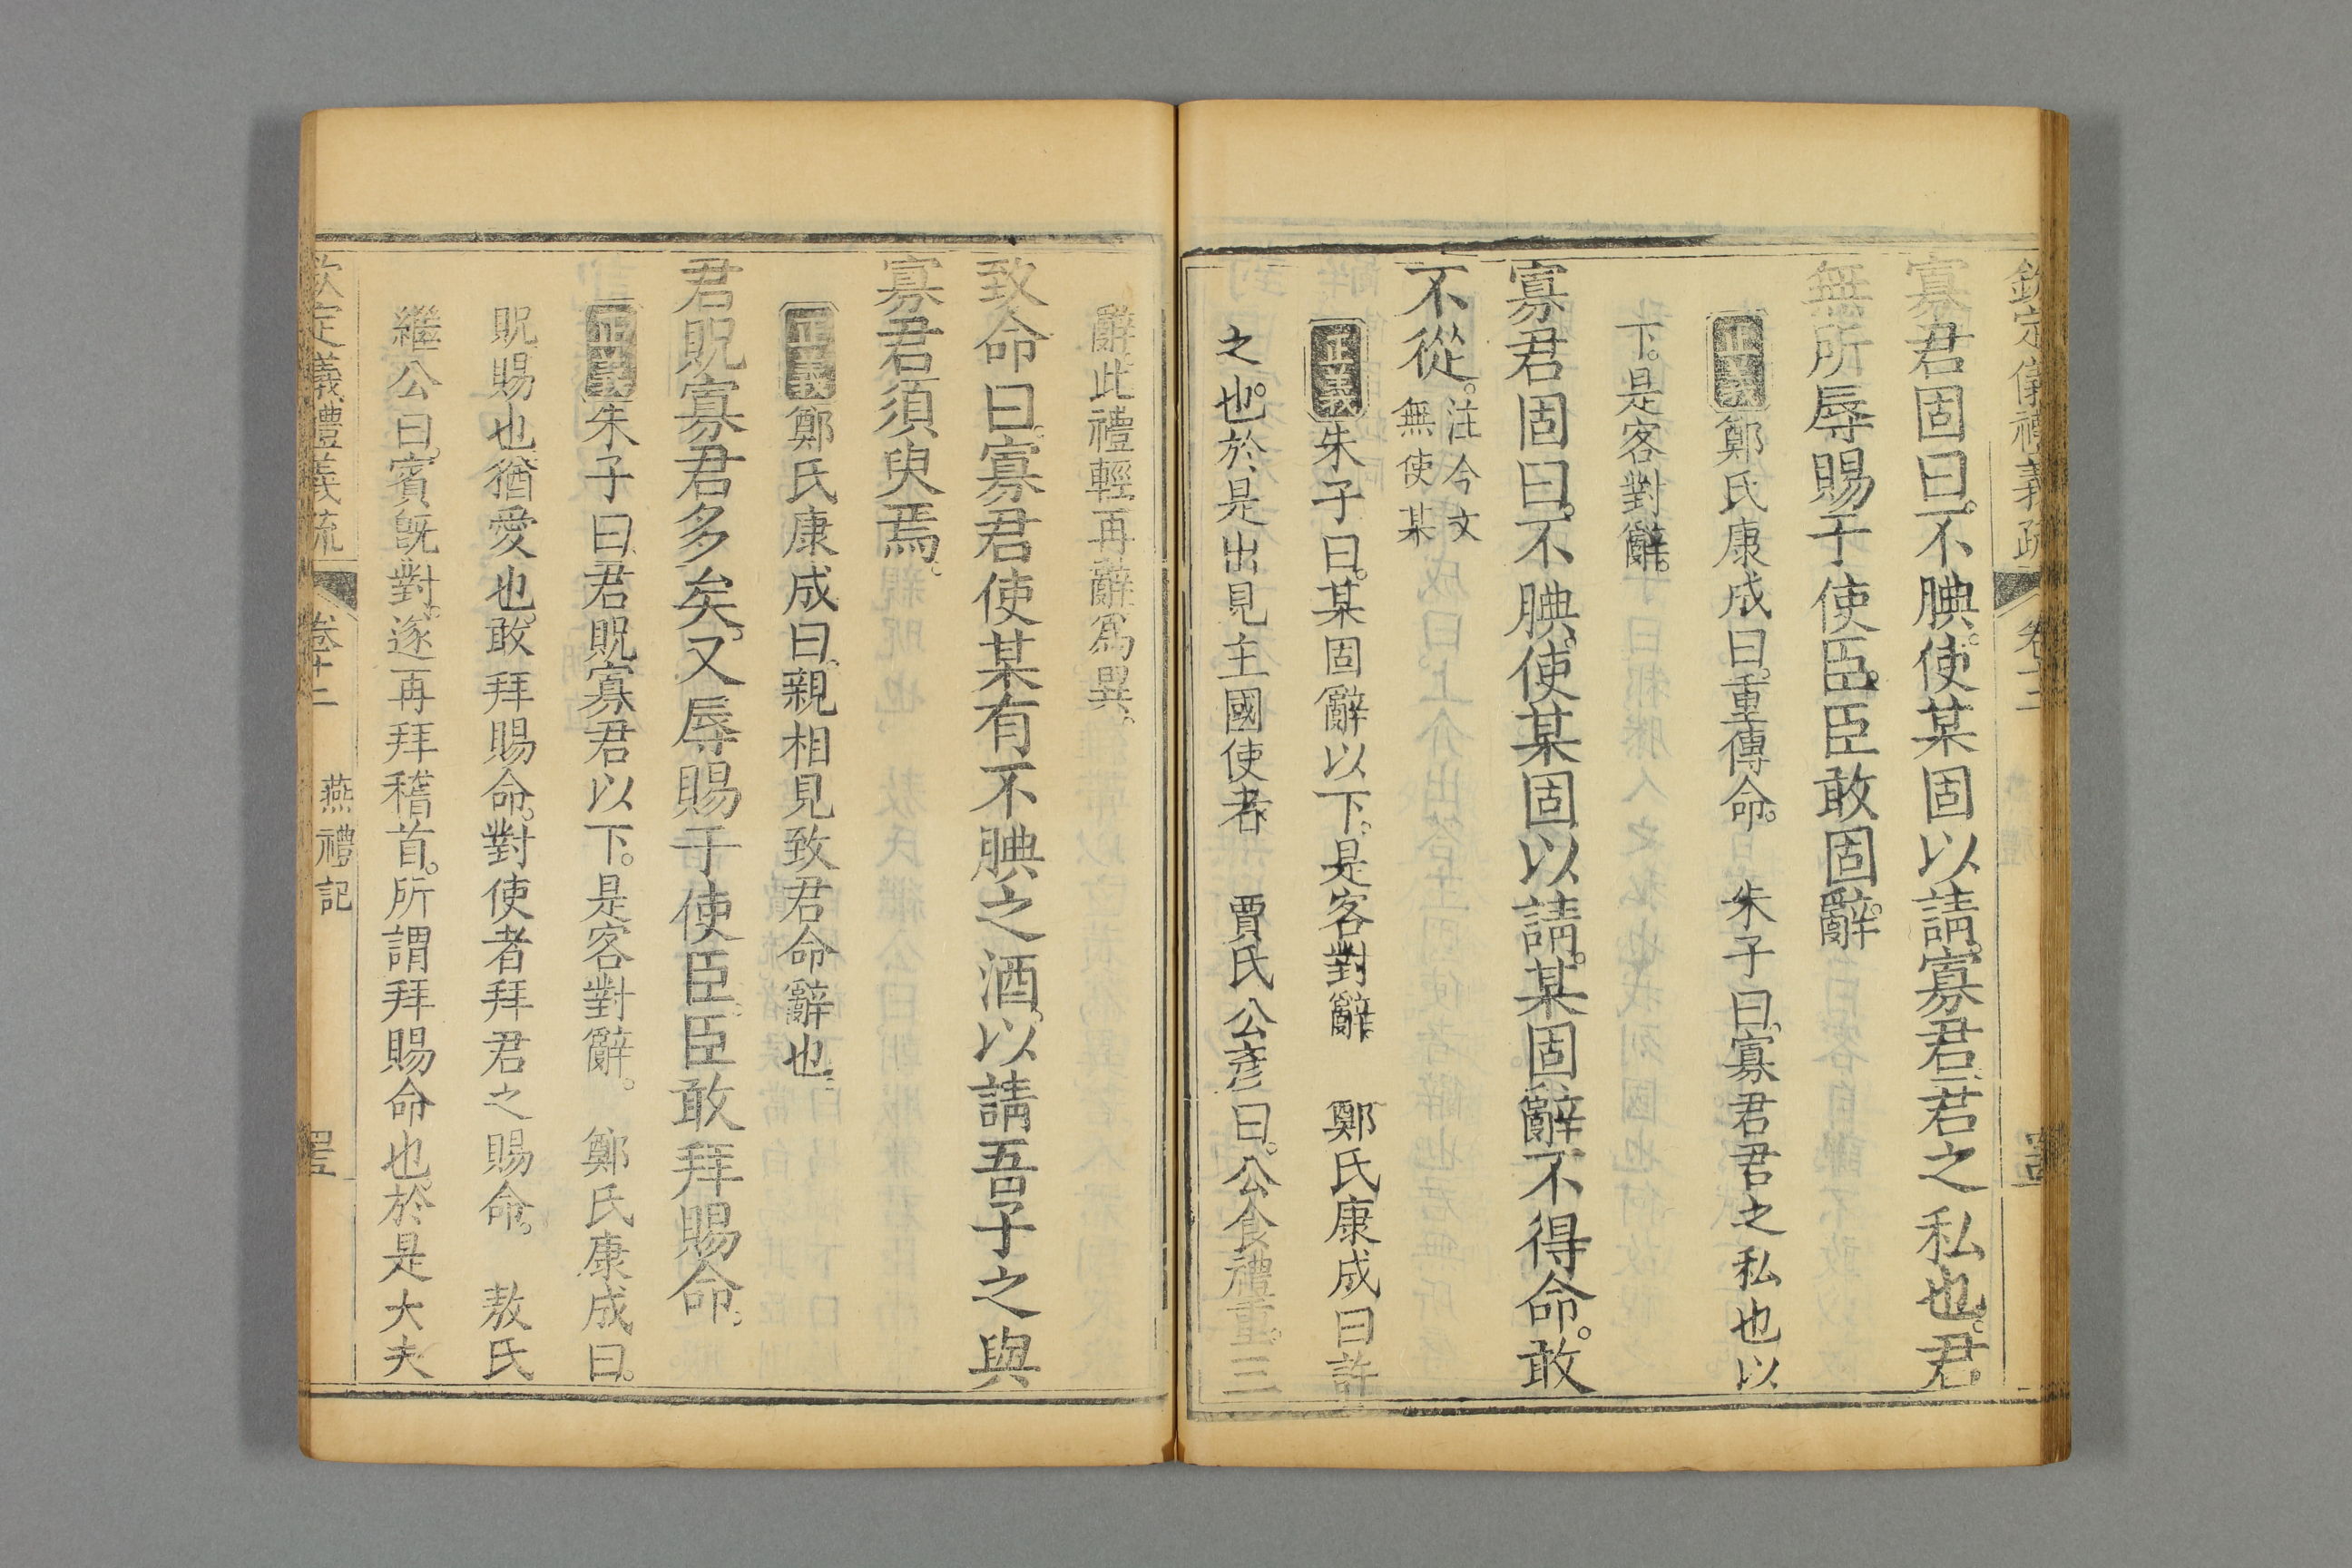 欽定儀禮義疏 卷十二
寡君固曰。不腆。使某固以請。寡君。君之私也。君
無所辱賜于使臣。臣敢固辭。
正義 鄭氏康成曰。重傳命。 朱子曰。寡君君之私也以
下。是客對辭。
寡君固曰。不腆。使某固以請。某固辭不得命。敢
不從。注今文
無使某
正義 朱子曰。某固辭以下。是客對辭。 鄭氏康成曰許
之也。於是出見主國使者。 賈氏公彥曰。公食禮重。三
辭此禮輕再辭爲異。
致命曰。寡君使某有不腆之酒。以請吾子之與
寡君須臾焉。
正義 鄭氏康成曰。親相見致君命辭也。
君貺寡君多矣。又辱賜于使臣。臣敢拜賜命。
正義 朱子曰。君貺寡君以下。是客對辭。 鄭氏康成曰。
貺賜也。猶愛也。敢拜賜命。對使者拜君之賜命。 敖氏
繼公曰。賓旣對。遂再拜稽首。所謂拜賜命也。於是大夫
欽定儀禮義疏 卷十二 燕禮記